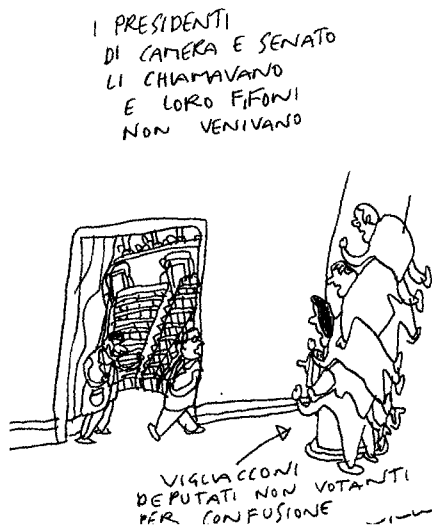 I PRESIDENTI
DI CAMERA E SENATO
LI CHIAMAVANO
E LORO FIFONI
NON VENIVANO
VIGLIACCONI
DEPUTATI NON VOTANTI
PER CONFUSIONE